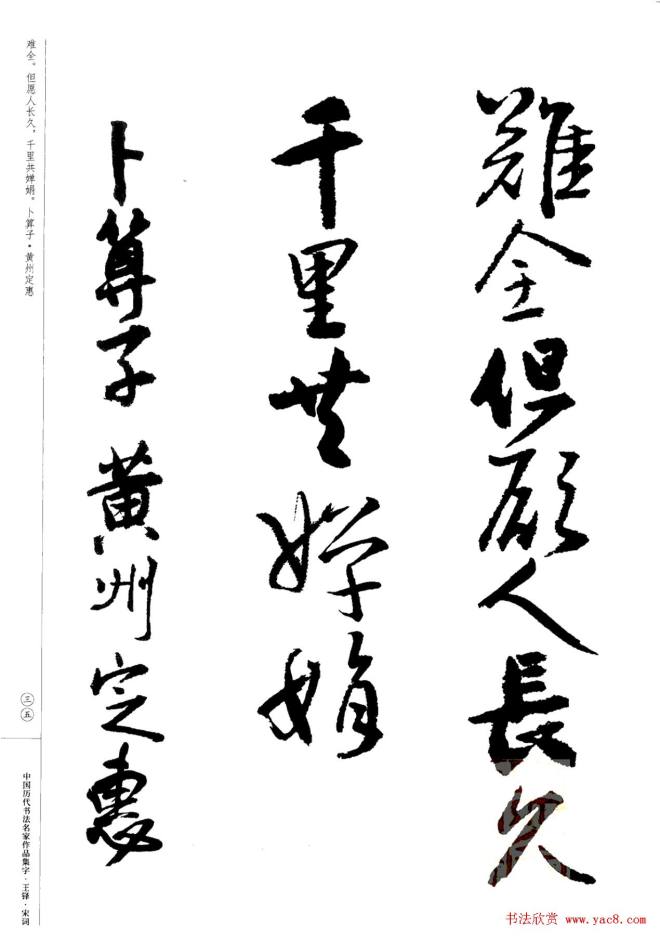 難全但願人長久
千里共嬋娟
卜算子 黄州定惠
难全。但愿人长久，千里共婵娟。卜算子·黄州定惠
三五
中国历代书法名家作品集字·王铎·宋词
书法欣赏 www.yac8.com